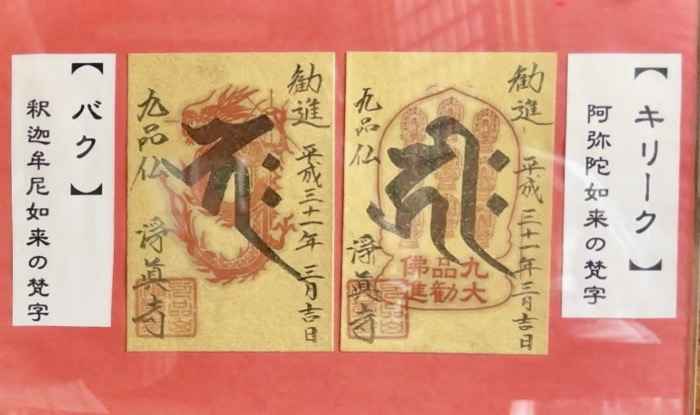 【キリーク】
阿弥陀如来の梵字
勧進 平成三十一年三月吉日
九品仏 淨眞寺
九品大
佛勧進
勧進 平成三十一年三月吉日
九品仏 淨眞寺
【バク】
釈迦牟尼如来の梵字